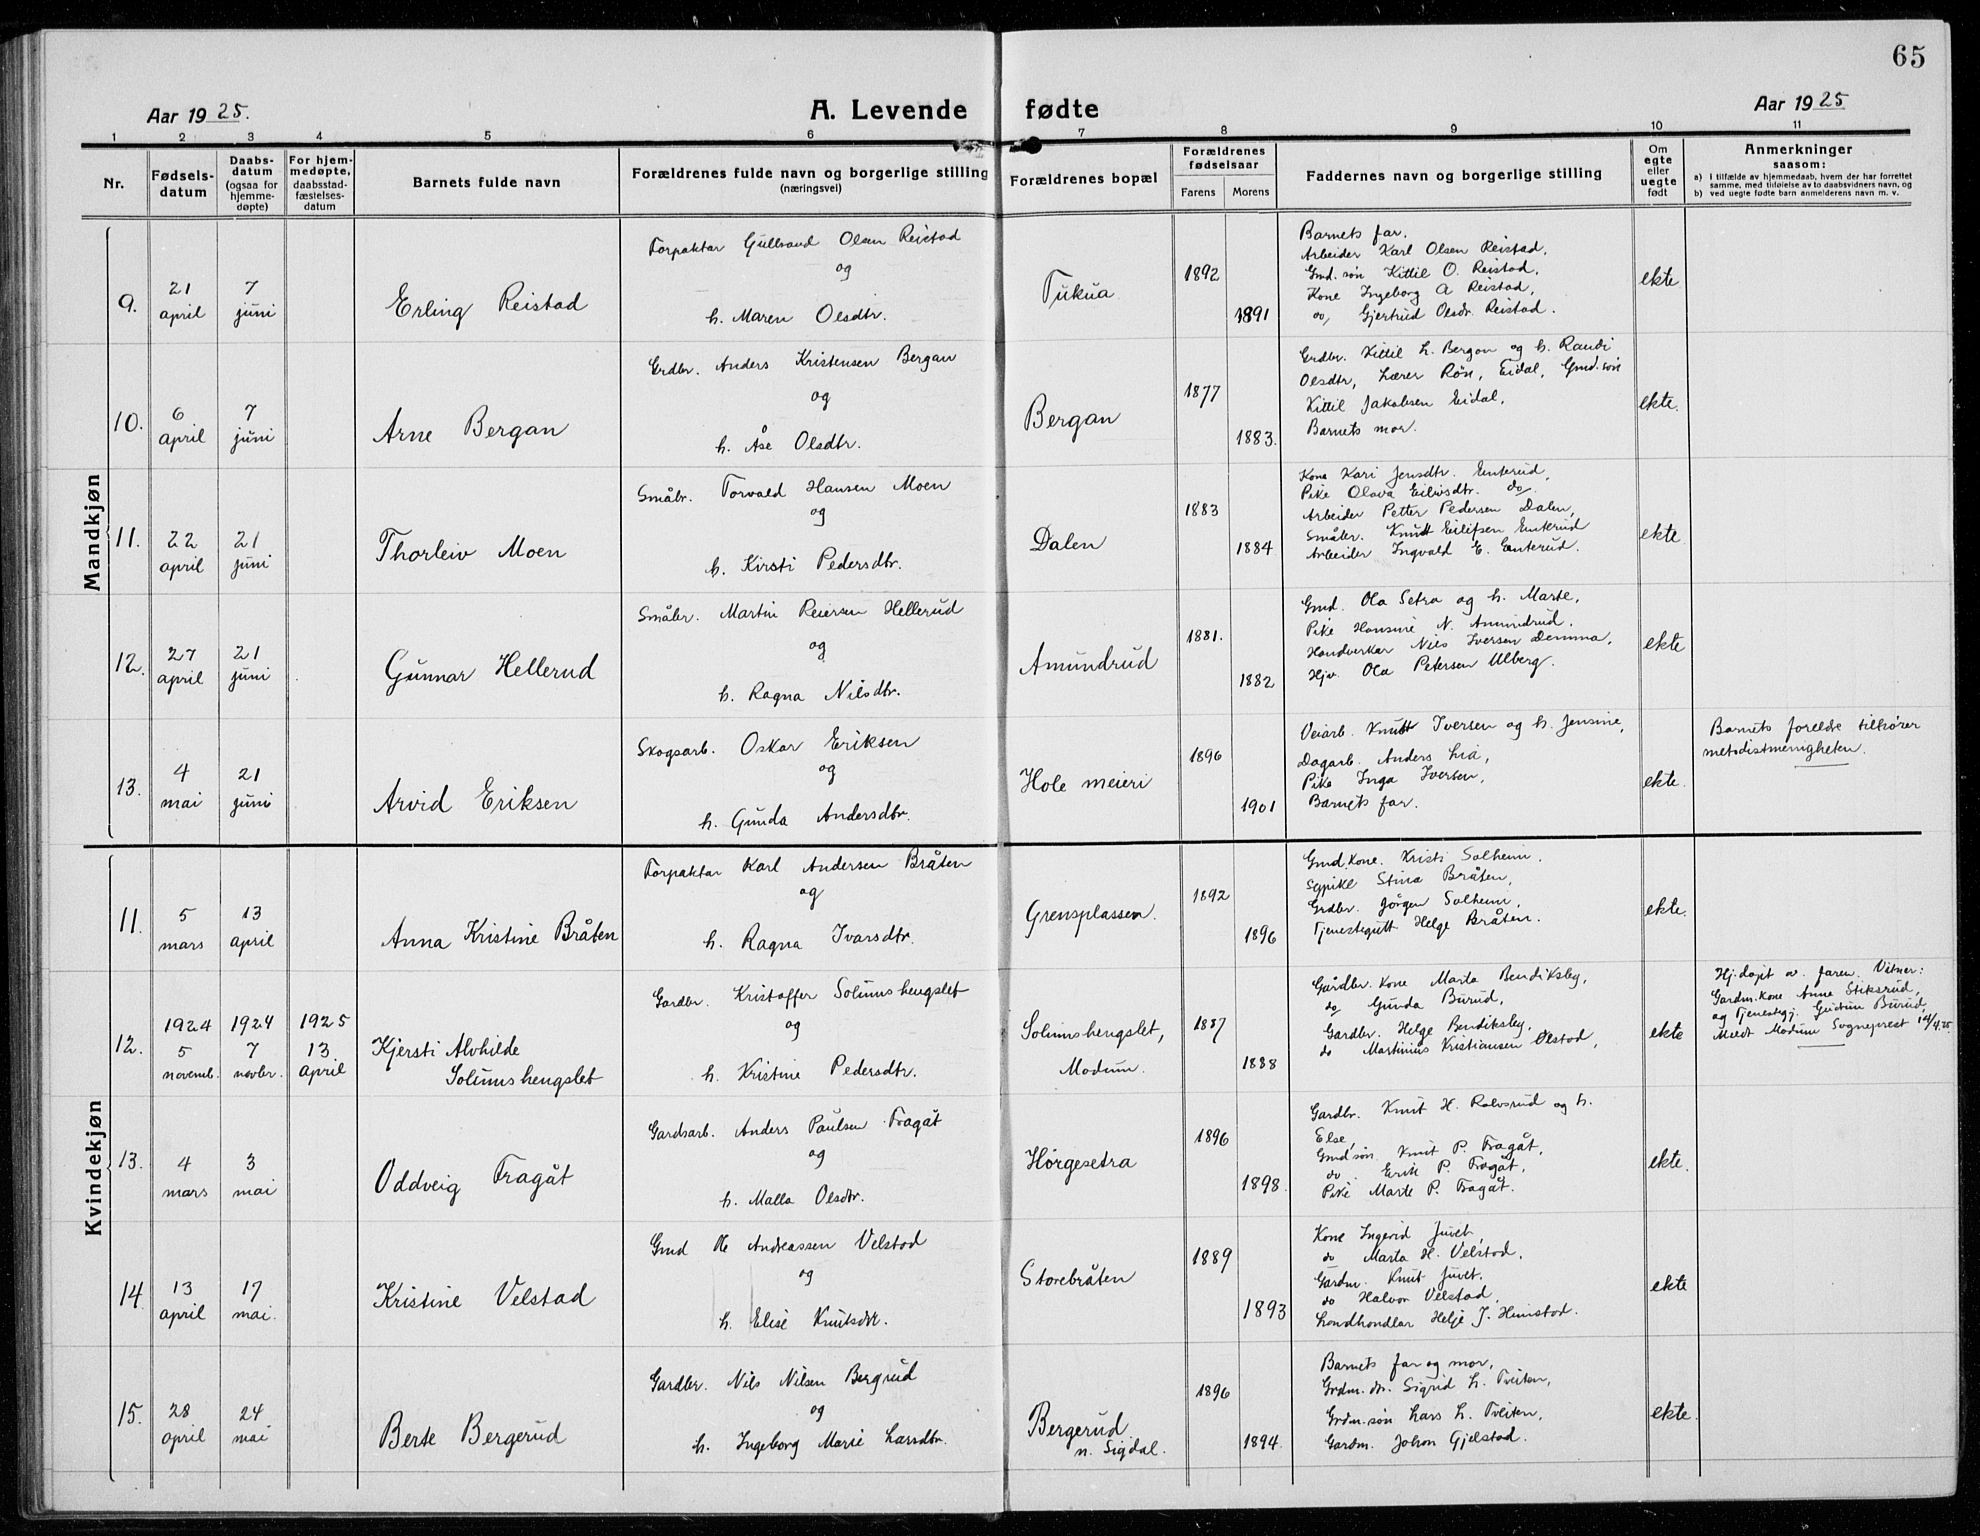 65
Aar 1925.
A. Levende fødte
Aar 1925
1 2 3 4 5 6 7 8 9 10 11
Nr.
Fødsels-
datum
Daabs-
datum
(ogsaa for
hjemme-
døpte)
For hjem-
medøpte,
daabsstad-
fæstelses-
datum
Barnets fulde navn
Forældrenes fulde navn og borgerlige stilling
(næringsvei)
Forældrenes bopæl
Forældrenes
fødselsaar
Farens Morens
Faddernes navn og borgerlige stilling
Om
egte
eller
uegte
født
Anmerkninger
saasom:
a) I tilfælde av hjemmedaab, hvem der har forrettet
samme, med tilføielse av to daabsvidners navn, og
b) ved uegte fødte barn anmelderens navn m. v.
Mandkjøn
9.
21
april
7
juni
Erling Reistad
Forpaktar Gullbrand Olsen Reistad
og
h. Maren Olsdtr.
Tukua
1892
1891
Barnets far.
Arbeider Karl Olsen Reistad,
Gmd. søn Kittil O. Reistad,
Kone Ingeborg A Reistad,
do, Gjertrud Olsdr. Reistad.
ekte
10.
6
april
7
juni
Arne Bergan
Grdbr. Anders Kristensen Bergan
og
h. Åse Olsdtr.
Bergan
1877
1883.
Grdbr. Kittil L. Bergan og h. Randi
Olsdtr, Lærer Røn, Eidal, Gmd. søn
Kittil Jakobsen Eidal,
Barnets mor.
ekte.
11.
22
april
21
juni
Thorleiv Moen
Småbr. Torvald Hansen Moen
og
h. Kirsti Pedersdtr.
Dalen
1883
1884
Kone Kari Jensdtr. Enterud,
Pike Olava Eilivsdtr. do
Arbeider Petter Pedersen Dalen,
Småbr. Knutt Eilifsen Enterud
Arbeider Ingvald E. Enterud.
ekte
12.
27
april
21
juni
Gunnar Hellerud
Småbr. Martin Reiersen Hellerud
og
h. Ragna Nilsdtr.
Amundrud
1881.
1882
Gmd. Ola Setra og h. Marte,
Pike Hansine N. Amundrud,
Handverkar Nils Iversen Demma,
Hjv. Ola Petersen Ulberg.
ekte
13.
4
mai
21
juni
Arvid Eriksen
Skogsarb. Oskar Eriksen
og
h. Gunda Andersdtr.
Hole meieri
1896
1901
Veiarb. Knutt Iversen og h. Jensine,
Dagarb. Anders Lia,
Pike Inga Iversen,
Barnets far.
ekte.
Barnets forelde tilhører
metodistmenigheten.
Kvindekjøn
11.
5
mars
13
april
Anna Kristine Bråten
Forpaktar Karl Andersen Bråten
og
h. Ragna Ivarsdtr.
Grensplassen.
1892
1896
Gmd. kone. Kristi Solheim.
Sypike Stina Bråten,
Grdbr. Jörgen Solheim,
Tjenestegutt Helge Bråten.
ekte.
12.
1924
5
novemb.
1924
7
novbr.
1925
13
april
Kjersti Alvhilde
Solumshengslet
Gardbr. Kristoffer Solumshengslet
og
h. Kristine Pedersdtr.
Solumshengslet,
Modum.
1887
1888
Gårdbr. kone Marta Bendiksby,
do Gunda Burud,
Gardbr. Helge Bendiksby,
do Martinius Kristiansen Ølstad,
ekte
Hj. døpt av faren. Vitner:
Gardm. kone Anne Stiksrud,
og Tjenestgj. Gudrun Burud,
Meldt Modum Sogneprest 14/4.25.
13.
4
mars
3
mai
Oddveig Fragåt
Gardsarb. Anders Paulsen Fragåt
og
h. Malla Olsdtr.
Hörgesetra
1896
1898.
Gardbr. Knut H. Rolvsrud og h.
Else,
Gmd søn. Knut P. Fragåt,
do Erik P. Fragåt,
Pike Marte P. Fragåt.
ekte.
14
13
april
17
mai.
Kristine Velstad
Gmd Ole Andreassen Velstad
og
h. Elise Knutsdtr.
Storebråten
1889
1893
Kone Ingerid Juvet,
do Marta H. Velstad,
Gardm. Knut Juvet.
do Halvor Velstad,
Landhandlar Helje J. Heimstad.
ekte
15.
28
april
24
mai
Berte Bergerud
Gardbr. Nils Nilsen Bergrud
og
h. Ingeborg Marie Larsdtr.
Bergerud
n. Sigdal.
1896
1894.
Barnets far og mor,
Grdm. dtr. Sigrid L. Tveiten,
Grdm. søn Lars L. Tveiten,
Gardm. Johan Gjelstad.
ekte.